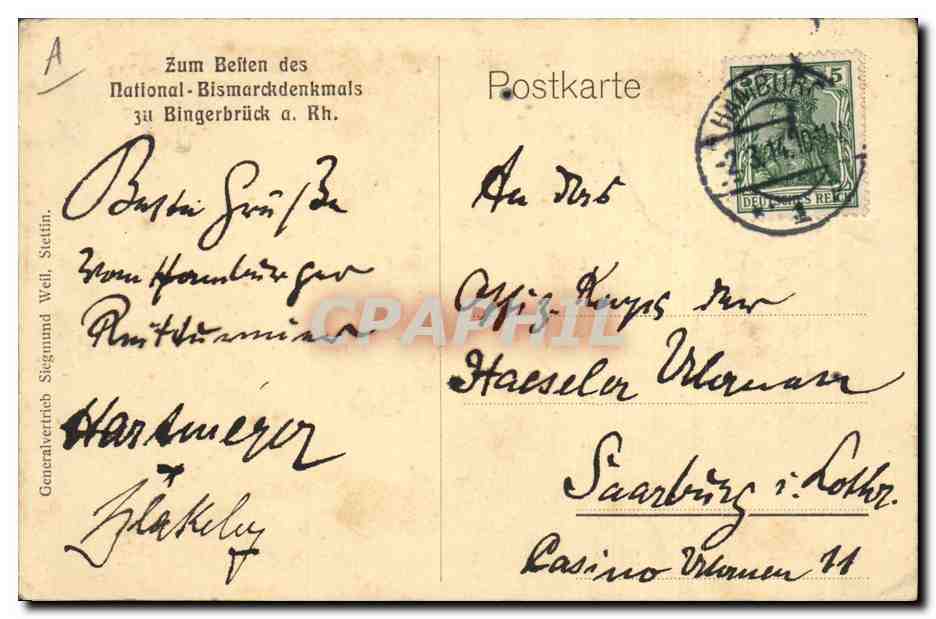 A
Zum Besten des
National-Bismarckdenkmals
zu Bingerbrück a. Rh.
Postkarte
5
HAMBURG
-2.3.14.10-11V
1
DEUTSCHES REICH
Generalvertrieb Siegmund Weil, Stettin.
Beste Grüße
vom Hamburger
Reitturnier
Hartmeyer
An das
Offiz. Korps der
Haeseler Ulanen
Saarburg i. Lothr.
Casino Ulanen 11
CPAPHIL